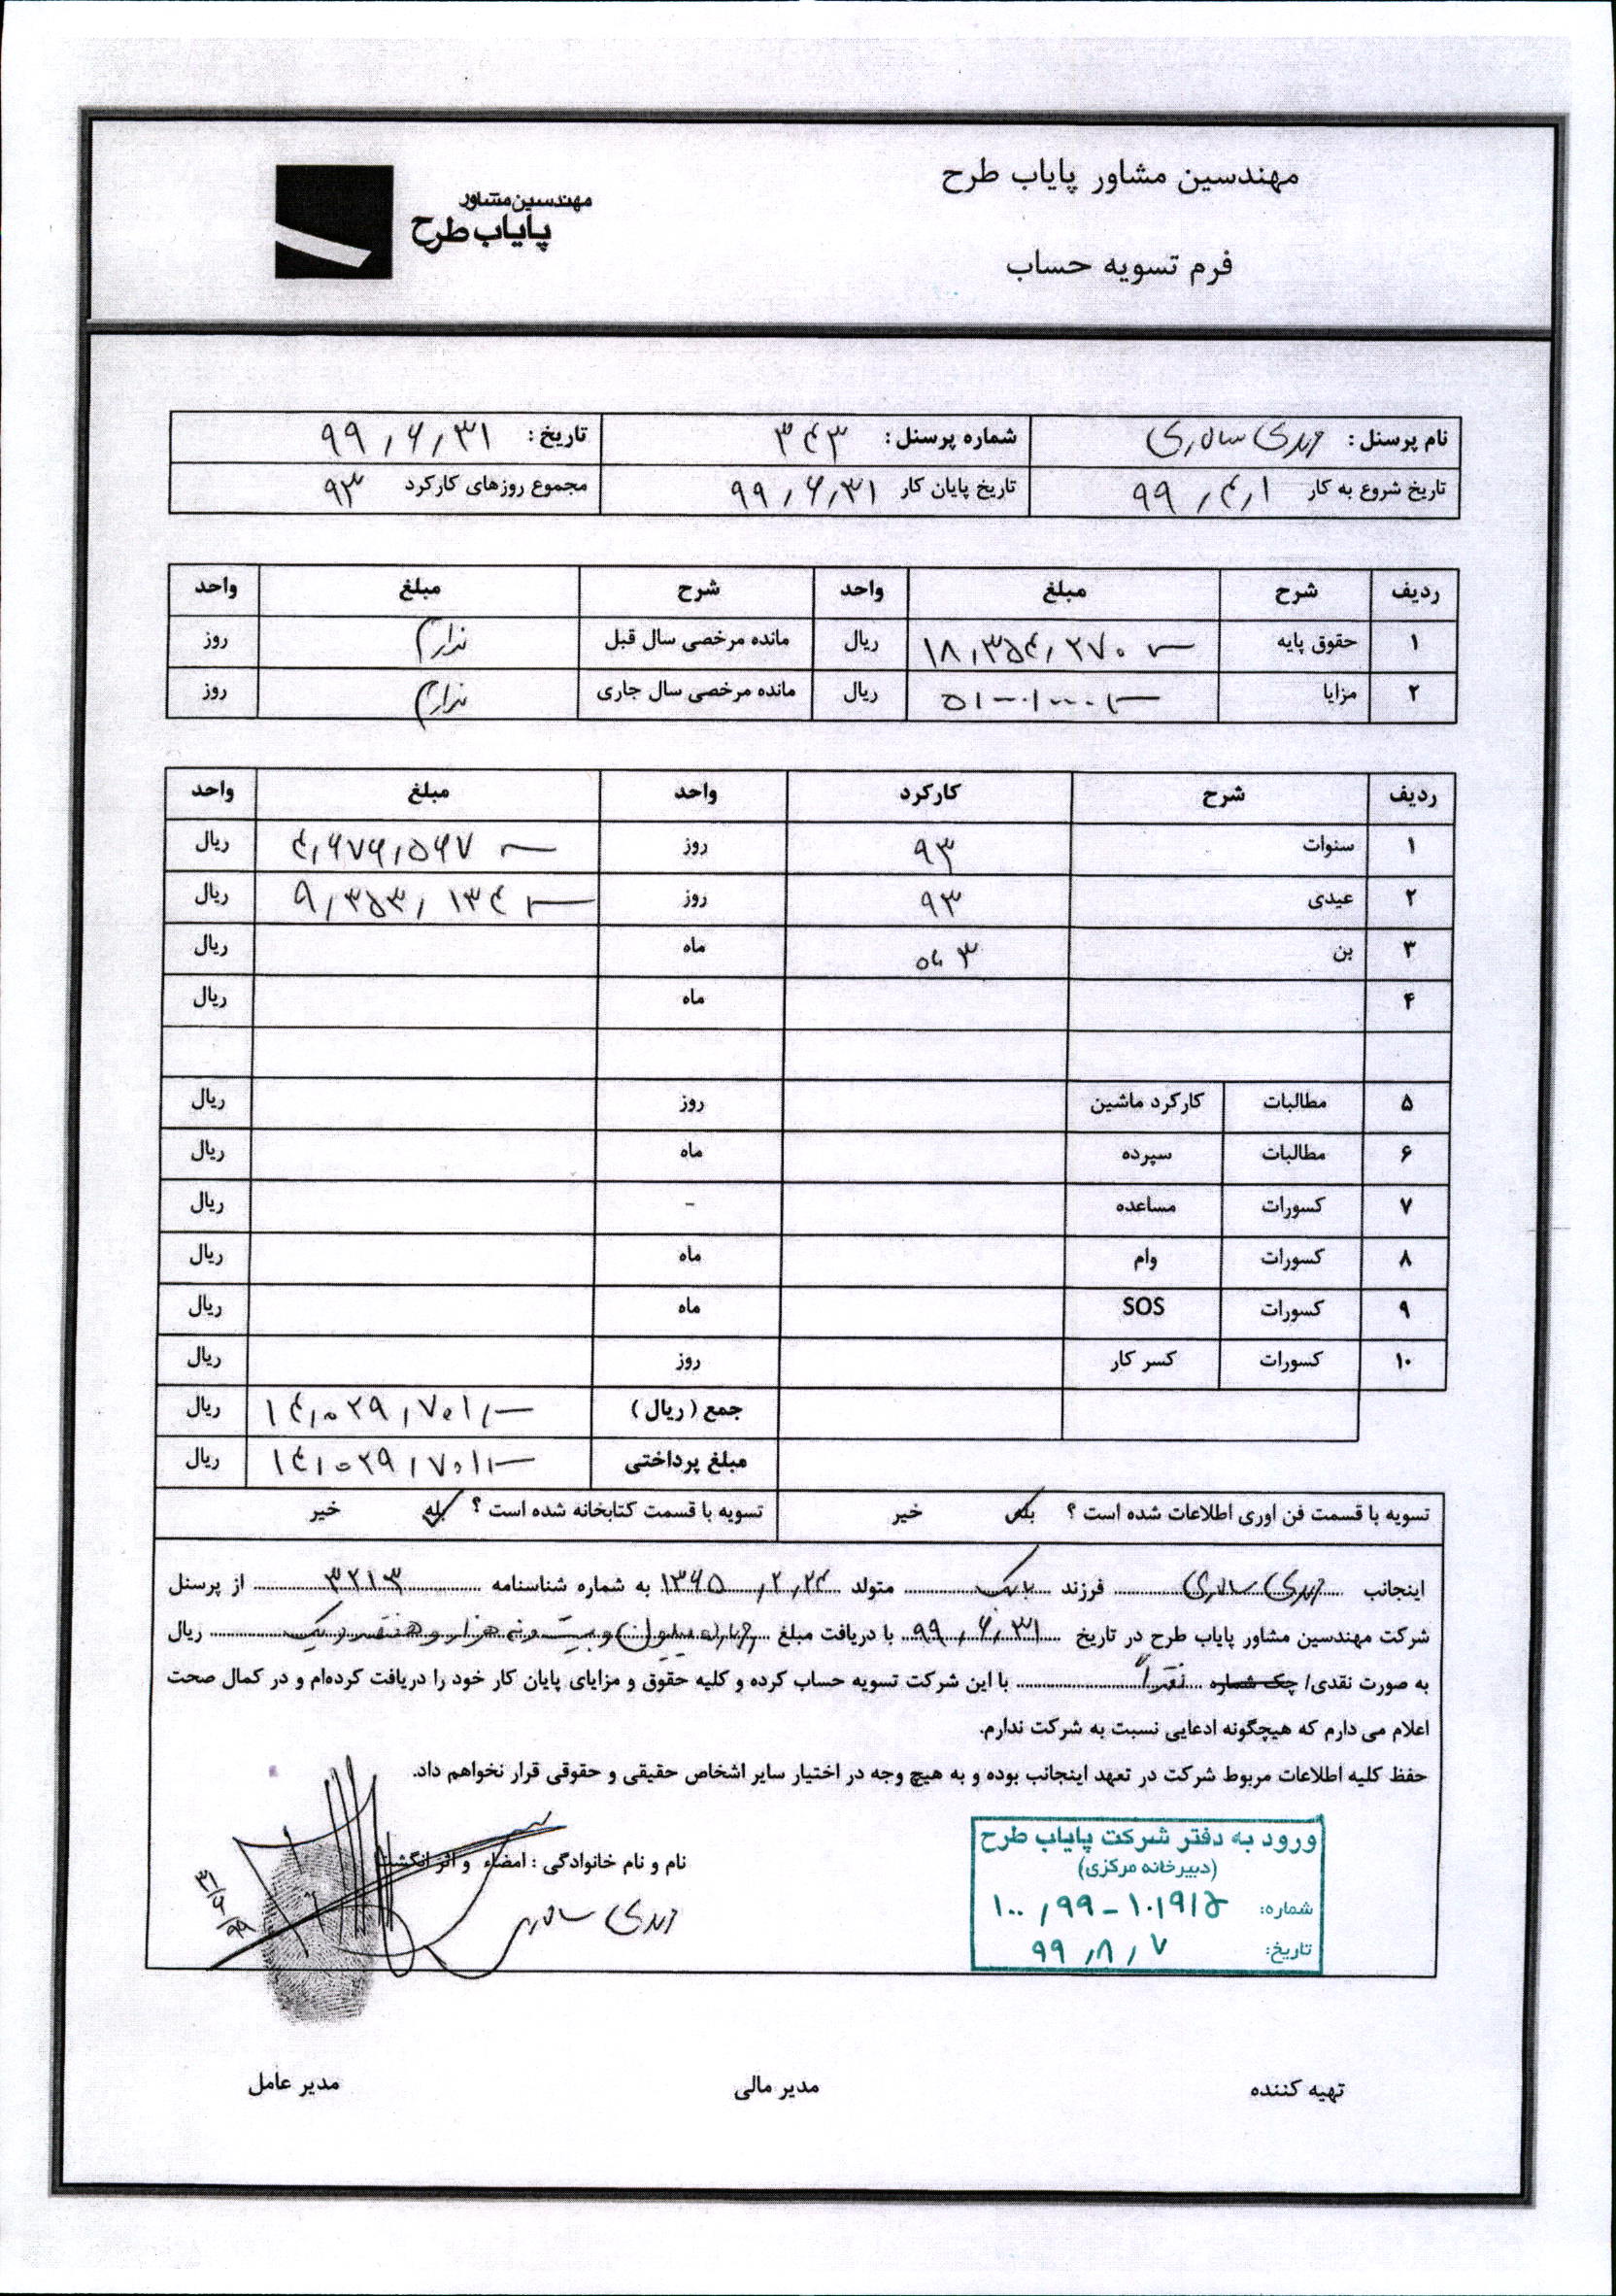 مهندسین مشاور پایاب طرح
مهندسین مشاور
پایاب طرح
فرم تسویه حساب
نام پرسنل : مهدی سالاری شماره پرسنل : ۳۴۳ تاریخ : ۹۹,۶,۳۱
تاریخ شروع به کار ۹۹,۴,۱ تاریخ پایان کار ۹۹,۶,۳۱ مجموع روزهای کارکرد ۹۳
ردیف شرح مبلغ واحد شرح مبلغ واحد
۱ حقوق پایه ۱۸,۳۵۴,۲۷۰ ریال مانده مرخصی سال قبل ندارم روز
۲ مزایا ریال مانده مرخصی سال جاری ندارم روز
ردیف شرح کارکرد واحد مبلغ واحد
۱ سنوات ۹۳ روز ۴,۶۷۶,۵۶۷ ریال
۲ عیدی ۹۳ روز ۹,۳۵۳,۱۳۴ ریال
۳ بن ۳ ماه ماه ریال
۴ ماه ریال
۵ مطالبات کارکرد ماشین روز ریال
۶ مطالبات سپرده ماه ریال
۷ کسورات مساعده - ریال
۸ کسورات وام ماه ریال
۹ کسورات SOS ماه ریال
۱۰ کسورات کسر کار روز ریال
جمع ( ریال ) ۱۴,۰۲۹,۷۰۱,- ریال
مبلغ پرداختی ۱۴,۰۲۹,۷۰۱,- ریال
تسویه با قسمت فن اوری اطلاعات شده است ؟ بله خیر تسویه با قسمت کتابخانه شده است ؟ بله خیر
اینجانب مهدی سالاری فرزند بابک متولد ۱۳۶۵,۲,۲۴ به شماره شناسنامه ۳۲۱۳ از پرسنل
شرکت مهندسین مشاور پایاب طرح در تاریخ ۹۹,۶,۳۱ با دریافت مبلغ چهارده میلیون و بیست و نه هزار و هفتصد و یک ریال
به صورت نقدی/ چک شماره نقداً با این شرکت تسویه حساب کرده و کلیه حقوق و مزایای پایان کار خود را دریافت کرده‌ام و در کمال صحت
اعلام می دارم که هیچگونه ادعایی نسبت به شرکت ندارم.
حفظ کلیه اطلاعات مربوط شرکت در تعهد اینجانب بوده و به هیچ وجه در اختیار سایر اشخاص حقیقی و حقوقی قرار نخواهم داد.
ورود به دفتر شرکت پایاب طرح
(دبیرخانه مرکزی)
شماره:
تاریخ: ۹۹,۸,۷
نام و نام خانوادگی : امضاء و اثر انگشت
مهدی سالاری
۳۱/۶/۹۹
تهیه کننده مدیر مالی مدیر عامل